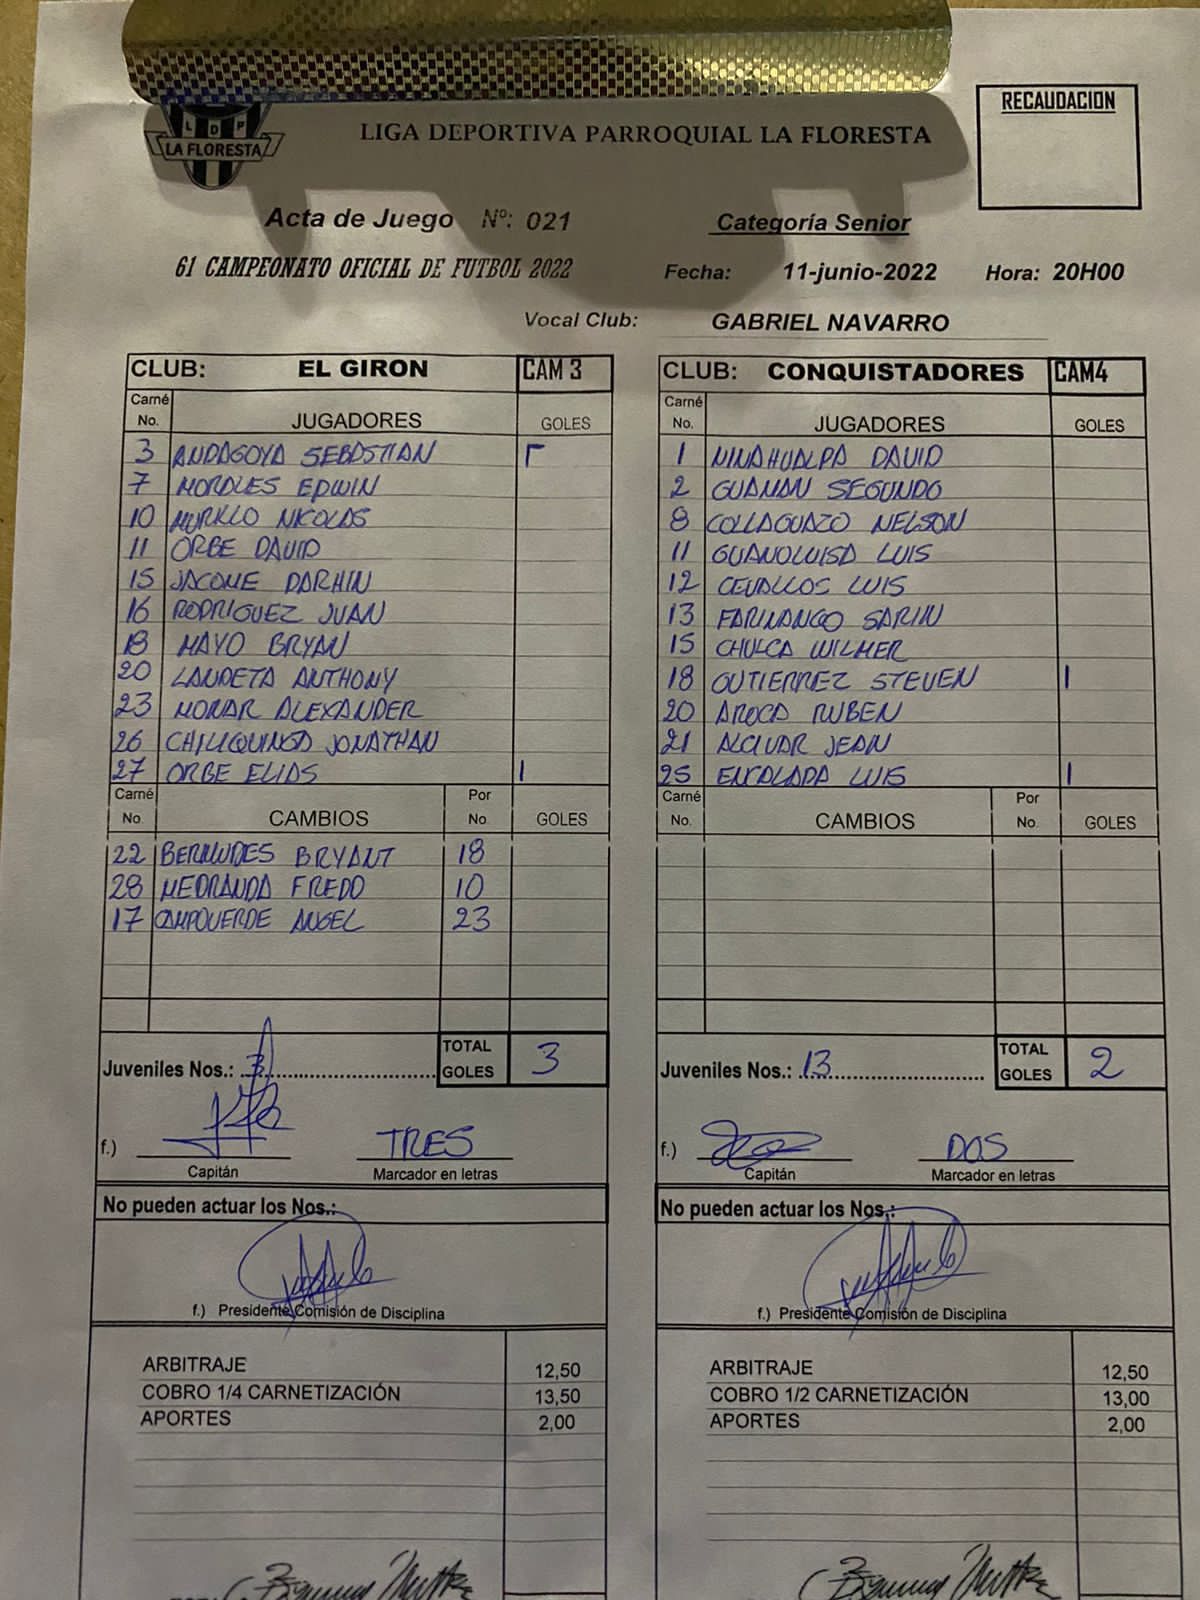 RECAUDACION
L D P
LA FLORESTA
LIGA DEPORTIVA PARROQUIAL LA FLORESTA
Acta de Juego Nº: 021
Categoría Senior
61 CAMPEONATO OFICIAL DE FUTBOL 2022
Fecha: 11-junio-2022 Hora: 20H00
Vocal Club: GABRIEL NAVARRO
CLUB: EL GIRON CAM 3
Carné No. JUGADORES GOLES
3 ANDAGOYA SEBASTIAN
7 MORALES EDWIN
10 MURILLO NICOLAS
11 ORBE DAVID
15 JACOME DARHIN
16 RODRIGUEZ JUAN
18 MAYO BRYAN
20 LANDETA ANTHONY
23 MONAR ALEXANDER
26 CHILIQUINGA JONATHAN
27 ORBE ELIAS 1
Carné No. CAMBIOS Por No. GOLES
22 BERMUDES BRYANT 18
28 MEDRANDA FREDO 10
17 CAMPOVERDE ANGEL 23
Juveniles Nos.: 3
TOTAL GOLES 3
f.) Capitán
TRES
Marcador en letras
No pueden actuar los Nos.:
f.) Presidente Comisión de Disciplina
ARBITRAJE 12,50
COBRO 1/4 CARNETIZACIÓN 13,50
APORTES 2,00
CLUB: CONQUISTADORES CAM4
Carné No. JUGADORES GOLES
1 NINAHUALPA DAVID
2 GUAMAN SEGUNDO
8 COLLAGUAZO NELSON
11 GUANOLUISA LUIS
12 CEVALLOS LUIS
13 FARINANGO SARIN
15 CHULCA WILMER
18 GUTIERREZ STEVEN 1
20 AROCA RUBEN
21 ALCIVAR JEAN
25 ENCALADA LUIS 1
Carné No. CAMBIOS Por No. GOLES
Juveniles Nos.: 13
TOTAL GOLES 2
f.) Capitán
DOS
Marcador en letras
No pueden actuar los Nos.:
f.) Presidente Comisión de Disciplina
ARBITRAJE 12,50
COBRO 1/2 CARNETIZACIÓN 13,00
APORTES 2,00